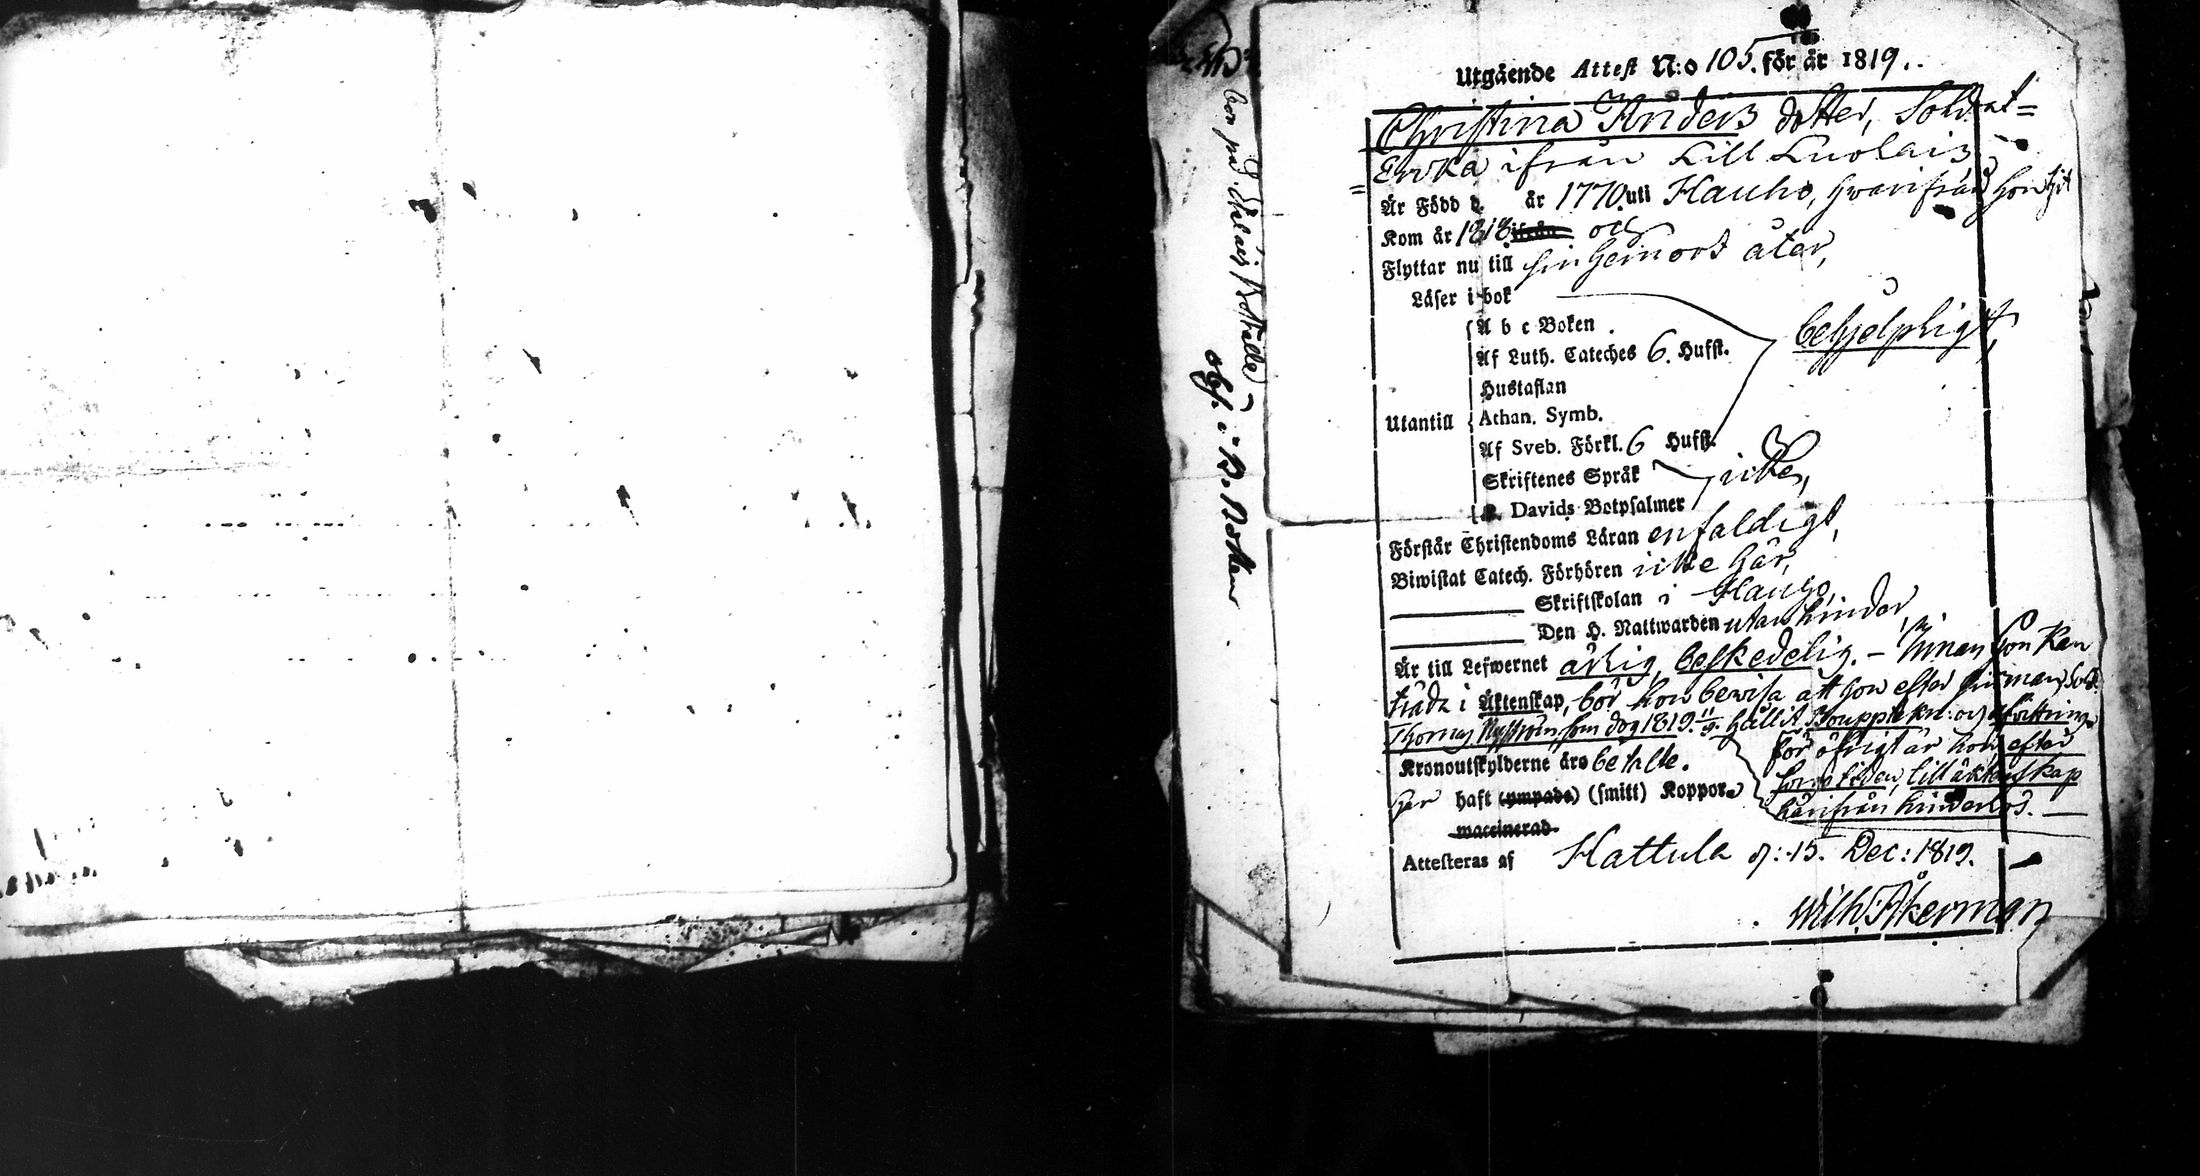 Utgående Attest N:o 105. för år 1819.
Christina Anders dotter, Soldat=
Enka ifrån Lill Luolais
Är Född d. år 1770. uti Hauho, hwarifrån hon hit
Kom år 1818 ifrån och
Flyttar nu till sin hemort åter,
Läser i bok
A b c Boken
Af Luth. Cateches 6. Hufst.
behjelpligt,
Hustaflan
Utantill Athan. Symb.
Af Sveb. Förkl. 6 Hufst.
Skriftenes Språk
icke,
Davids Botpsalmer
Förstår Christendoms Läran enfaldigt,
Biwistat Catech. Förhören icke här,
Skriftskolan i Hauho,
Den H. Nattwarden utan hinder,
Är till Lefwernet ärlig, beskedelig. - Innan hon kan
träda i Äktenskap, bör hon bewisa att hon efter sin man, Sold.
Thomas Nyström, som dog 1819 11/9. hållit Boupptekn: och afvittring
för öfrigt är hon efter
Kronoutskylderne äro betalte.
sorgetiden, till äktenskap
har haft (ympade) (smitt) Koppor
härifrån hinderlös.
waccinerad
Attesteras af Hattula d: 15. Dec: 1819.
Wilh. Åkerman